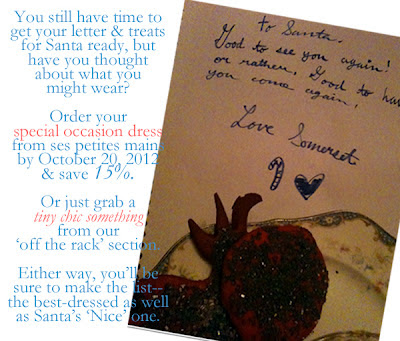 You still have time to
get your letter & treats
for Santa ready, but
have you thought
about what you
might wear?
Order your
special occasion dress
from ses petites mains
by October 20, 2012
& save 15%.
Or just grab a
tiny chic something
from our
‘off the rack’ section.
Either way, you’ll be
sure to make the list--
the best-dressed as well
as Santa’s ‘Nice’ one.
To Santa.
Good to see you again!
or rather, Good to have
you come again!
Love Somerset